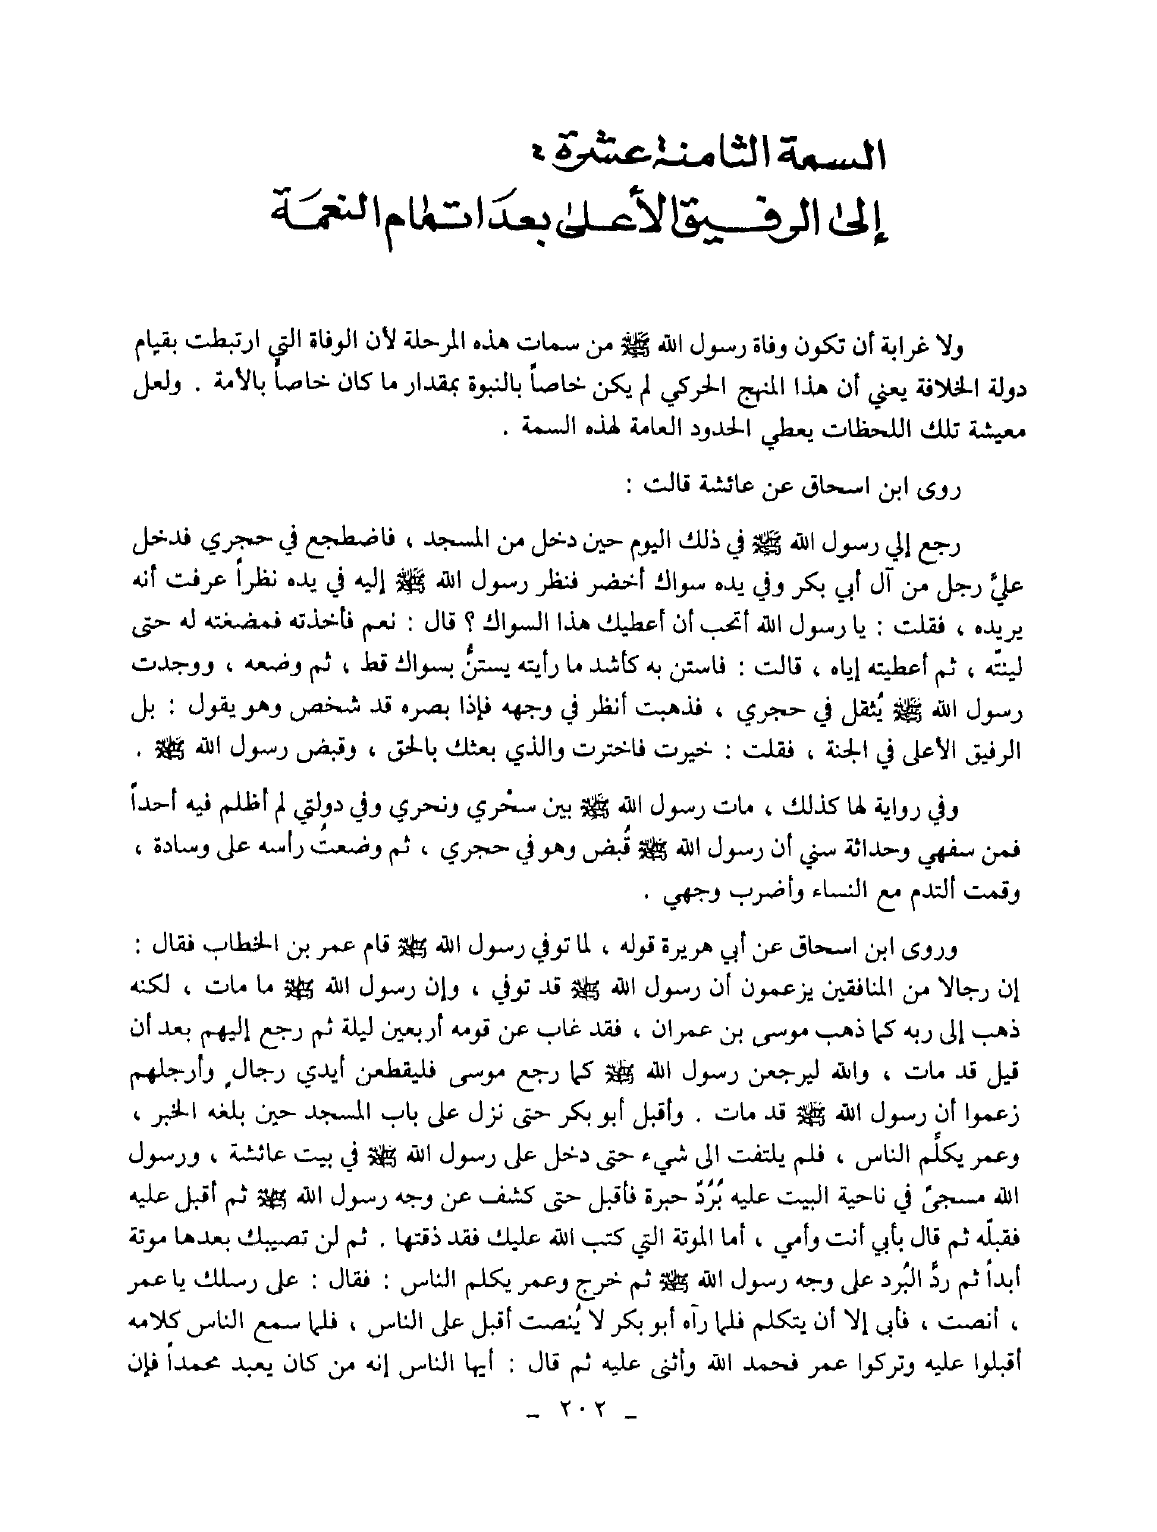 السمة الثامنة عشرة :
إلى الرفيق الأعلى بعد اتمام النعمة
ولا غرابة أن تكون وفاة رسول الله ﷺ من سمات هذه المرحلة لأن الوفاة التي ارتبطت بقيام
دولة الخلافة يعني أن هذا المنهج الحركي لم يكن خاصاً بالنبوة بمقدار ما كان خاصاً بالأمة . ولعل
معيشة تلك اللحظات يعطي الحدود العامة لهذه السمة .
روى ابن اسحاق عن عائشة قالت :
رجع إلي رسول الله ﷺ في ذلك اليوم حين دخل من المسجد ، فاضطجع في حجري فدخل
عليَّ رجل من آل أبي بكر وفي يده سواك أخضر فنظر رسول الله ﷺ إليه في يده نظراً عرفت أنه
يريده ، فقلت : يا رسول الله أتحب أن أعطيك هذا السواك ؟ قال : نعم فأخذته فمضغته له حتى
لينتّه ، ثم أعطيته إياه ، قالت : فاستن به كأشد ما رأيته يستنُّ بسواك قط ، ثم وضعه ، ووجدت
رسول الله ﷺ يُثقل في حجري ، فذهبت أنظر في وجهه فإذا بصره قد شخص وهو يقول : بل
الرفيق الأعلى في الجنة ، فقلت : خيرت فاخترت والذي بعثك بالحق ، وقبض رسول الله ﷺ .
وفي رواية لها كذلك ، مات رسول الله ﷺ بين سحْري ونحري وفي دولتي لم أظلم فيه أحداً
فمن سفهي وحداثة سني أن رسول الله ﷺ قُبض وهو في حجري ، ثم وضعتُ رأسه على وسادة ،
وقمت ألتدم مع النساء وأضرب وجهي .
وروى ابن اسحاق عن أبي هريرة قوله ، لما توفي رسول الله ﷺ قام عمر بن الخطاب فقال :
إن رجالا من المنافقين يزعمون أن رسول الله ﷺ قد توفي ، وإن رسول الله ﷺ ما مات ، لكنه
ذهب إلى ربه كما ذهب موسى بن عمران ، فقد غاب عن قومه أربعين ليلة ثم رجع إليهم بعد أن
قيل قد مات ، والله ليرجعن رسول الله ﷺ كما رجع موسى فليقطعن أيدي رجالٍ وأرجلهم
زعموا أن رسول الله ﷺ قد مات . وأقبل أبو بكر حتى نزل على باب المسجد حين بلغه الخبر ،
وعمر يكلِّم الناس ، فلم يلتفت الى شيء حتى دخل على رسول الله ﷺ في بيت عائشة ، ورسول
الله مسجىً في ناحية البيت عليه بُرْدٌ حبرة فأقبل حتى كشف عن وجه رسول الله ﷺ ثم أقبل عليه
فقبلّه ثم قال بأبي أنت وأمي ، أما الموتة التي كتب الله عليك فقد ذقتها . ثم لن تصيبك بعدها موتة
أبداً ثم ردَّ البُرد على وجه رسول الله ﷺ ثم خرج وعمر يكلم الناس : فقال : على رسلك يا عمر
، أنصت ، فأبى إلا أن يتكلم فلما رآه أبو بكر لا يُنصت أقبل على الناس ، فلما سمع الناس كلامه
أقبلوا عليه وتركوا عمر فحمد الله وأثنى عليه ثم قال : أيها الناس إنه من كان يعبد محمداً فإن
_ ٢٠٢ _